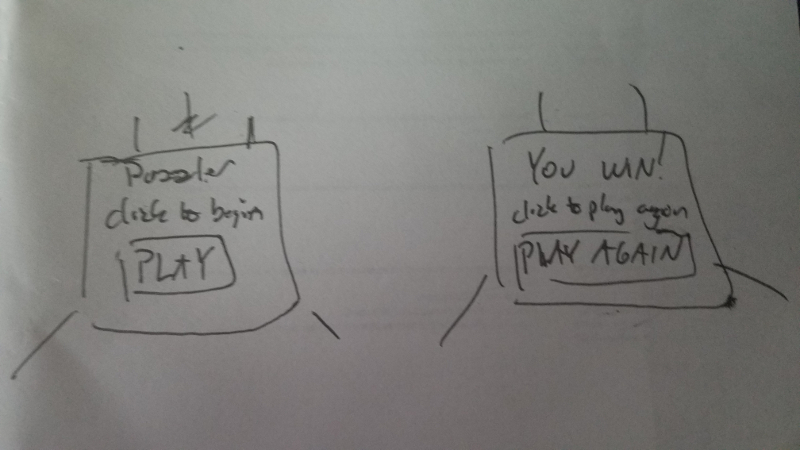 Puzzler
click to begin
PLAY
YOU WIN!
click to play again
PLAY AGAIN